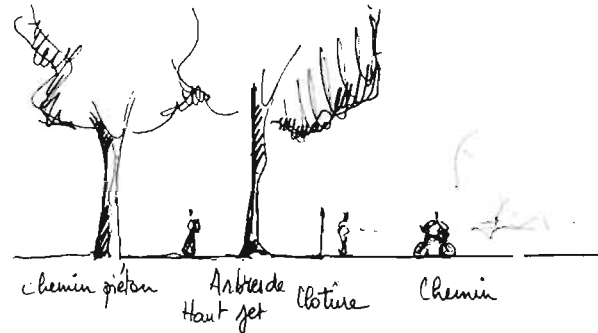 chemin piéton
Arbres de
Haut jet
Clotûre
Chemin